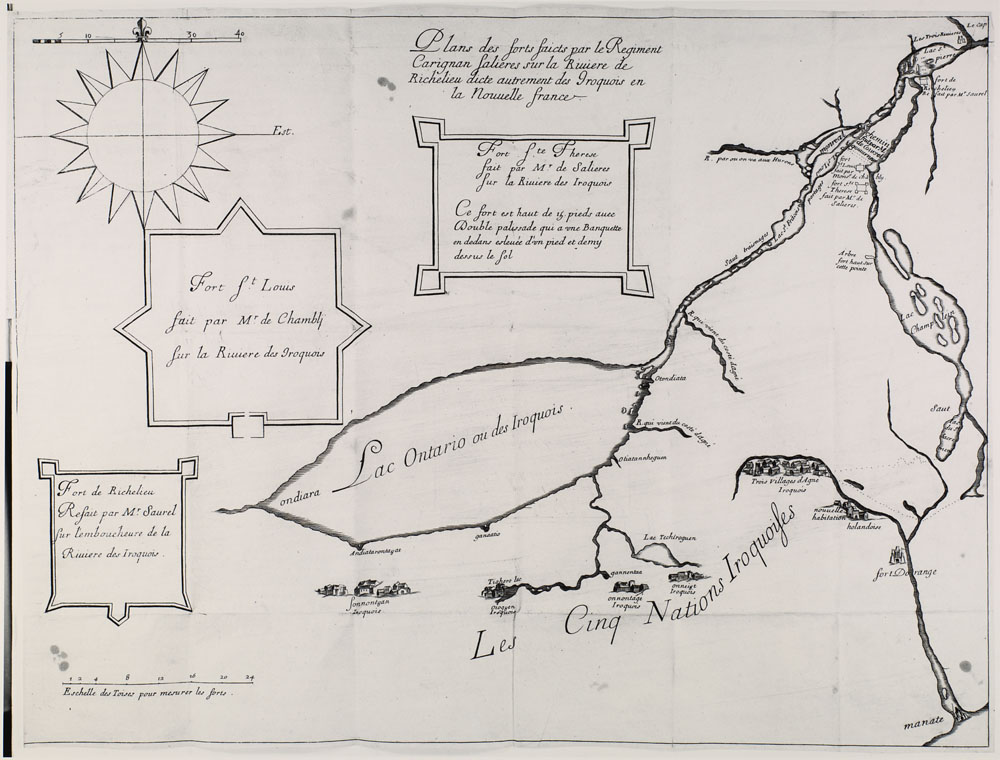 5 10 30 40
Est.
Plans des forts faicts par le Regiment
Carignan salieres sur la Riuiere de
Richelieu dicte autrement des Iroquois en
la Nouuelle france
Fort s.te Therese
fait par M.r de Salieres
sur la Riuiere des Iroquois
Ce fort est haut de 15 pieds auec
Double palissade qui a vne Banquette
en dedans esleuée d'vn pied et demy
dessus le sol
Fort s.t Louis
fait par M.r de Chamblj
sur la Riuiere des Iroquois
Fort de Richelieu
Refait par M.r Saurel
sur lemboucheure de la
Riuiere des Iroquois.
1 2 4 8 12 16 20 24
Eschelle des Toises pour mesurer les forts.
Le Cap
Les Trois Riuieres
Lac St.
pierre
fort de
Richelieu
Re fait par M.r Saurel
R. par ou on va aux Hurons
montreal
chemin
fort
St Louis
fait par
Mons.r de chambly
fort s.te
Therese
fait par M.r de
Salieres
portages
Lac St. francois
Saut traisnages
Arbre
fort haut sur
cette pointe
Lac
Champlain
Saut
R. qui vient du costé d'Agné
Otondiata
R. qui vient du costé d'Agné
Otiatannhegum
Lac Ontario ou des Iroquois.
ondiara
Andiatarontagat
ganeatio
Trois Villages d'Agne
Iroquois
nouuelle
habitation
holandoise
fort Dorange
Lac Techiroguen
gannentaa
onneiout
Iroquois
onnontagé
Iroquois
Tichero lac
Oiogoen
Iroquois
sonnontoan
Iroquois
Les Cinq Nations Iroquoises
manate